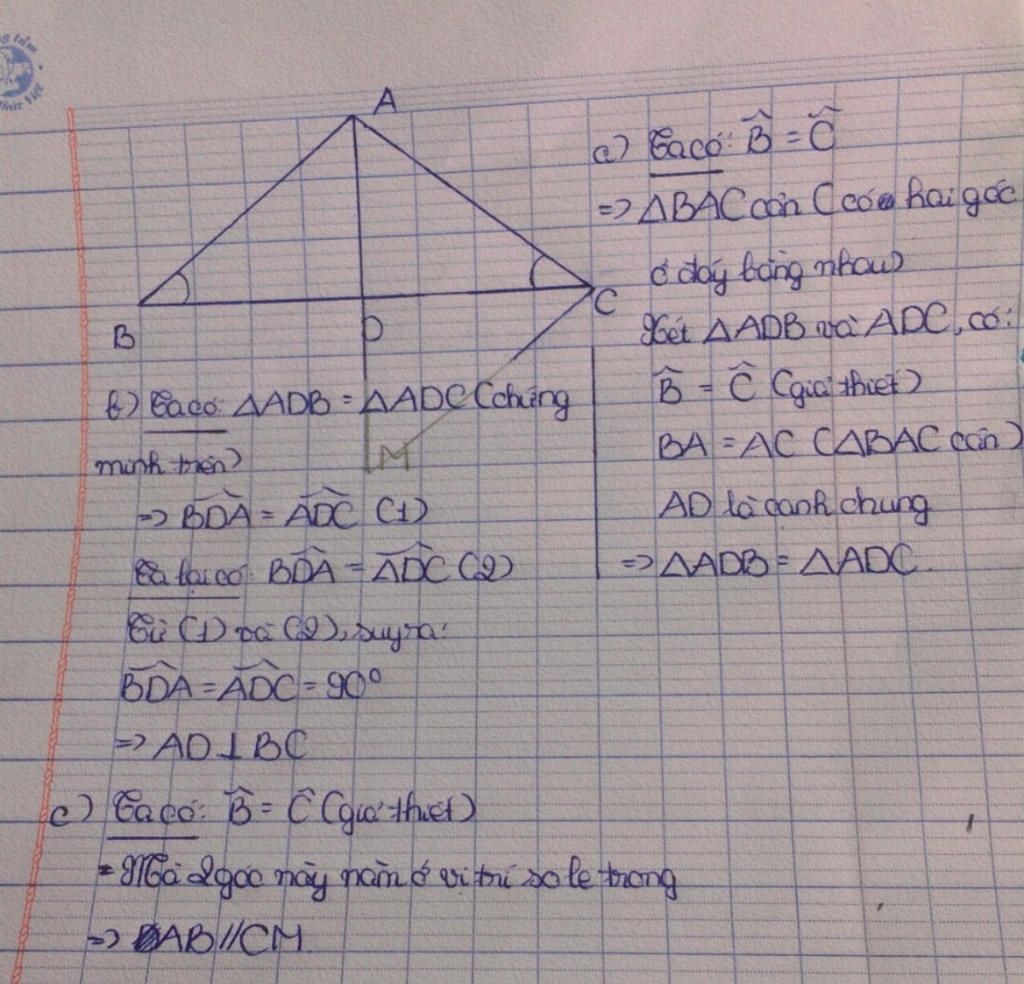 A
B
D
C
M
a) Ta có: B̂ = Ĉ
=> ΔBAC cân ( có hai góc
ở đáy bằng nhau)
Xét ΔADB và ADC, có:
B̂ = Ĉ (giả thiết)
BA = AC (ΔBAC cân)
AD là cạnh chung
=> ΔADB = ΔADC.
b) Ta có: ΔADB = ΔADC (chứng
minh trên)
=> BDA = ADC (1)
Ta lại có: BDA = ADC (2)
Từ (1) và (2), suy ra:
BDA = ADC = 90°
=> AD ⊥ BC
c) Ta có: B̂ = Ĉ (giả thiết)
= Mà 2 góc này nằm ở vị trí so le trong
=> AB // CM